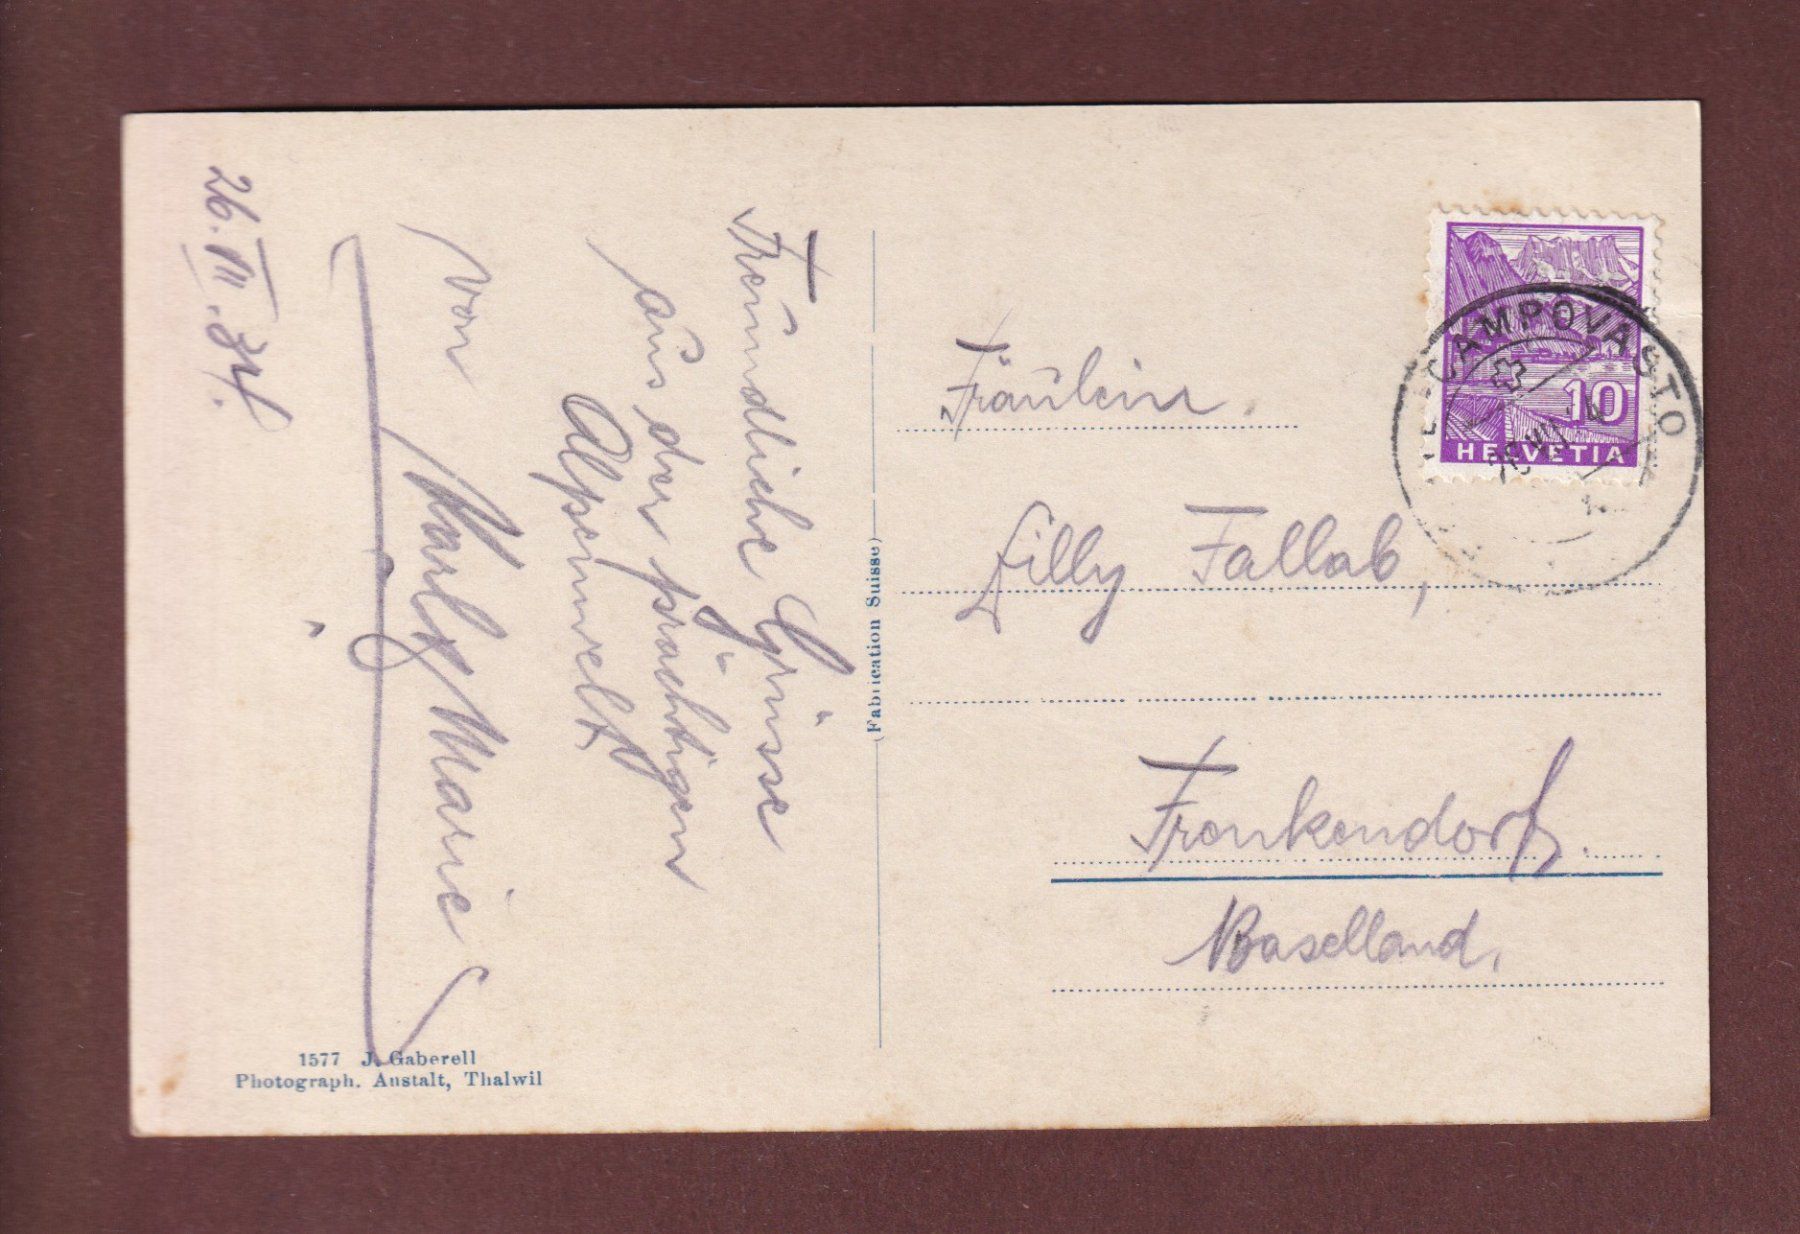 26. VII. 34.
Freundliche Grüsse
aus der prächtigen
Alpenwelt
von
Karly Marie
1577 J. Gaberell
Photograph. Anstalt, Thalwil
(Fabrication Suisse)
CAMPOVASTO
10
HELVETIA
Fräulein.
Lilly Fallab,
Frenkendorf.
Baselland.